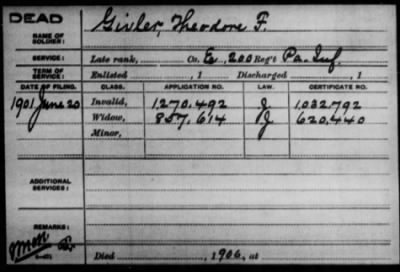 DEAD
NAME OF SOLDIER: Givler, Theodore F.
SERVICE: Late rank, Co. E, 200 Reg't Pa. Inf.
TERM OF SERVICE: Enlisted , 1 Discharged , 1
DATE OF FILING. CLASS. APPLICATION NO. LAW. CERTIFICATE NO.
1901 June 20 Invalid, 1,270,492 J 1,032,792
Widow, 857,614 J 620,440
Minor,
ADDITIONAL SERVICES:
REMARKS:
Died , 1906, at